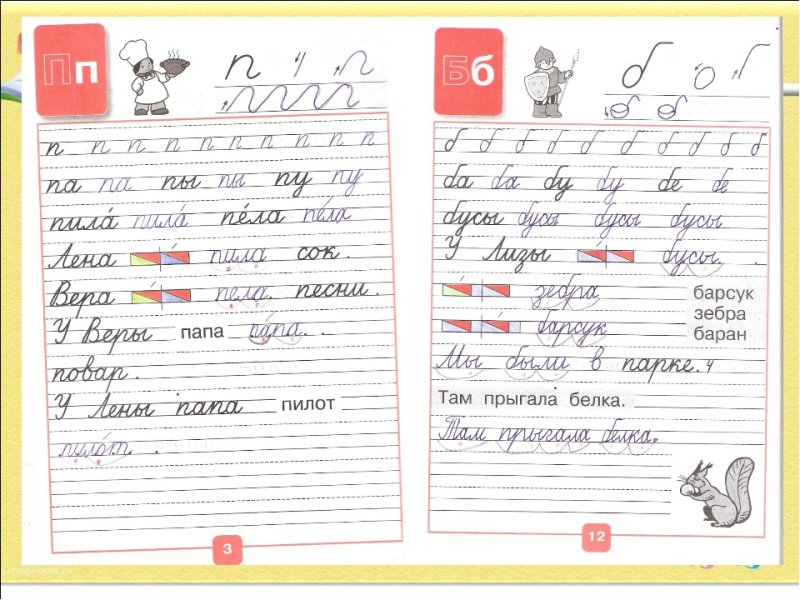 Пп
п ч п
п п п п п п п п п п
па па пы пы пу пу
пила́ пила́ пе́ла пе́ла
Лена пила сок.
Вера пела. песни.
У Веры папа па́па.
повар.
У Лены папа пилот
пило́т.
3
Бб
б
б б б б б б б б б б
ба ба бу бу бе бе
бусы бусы бусы бусы
У Лизы бусы.
зебра барсук
зебра
барсук баран
Мы были в парке. 4
Там прыгала белка.
Там прыгала белка.
12